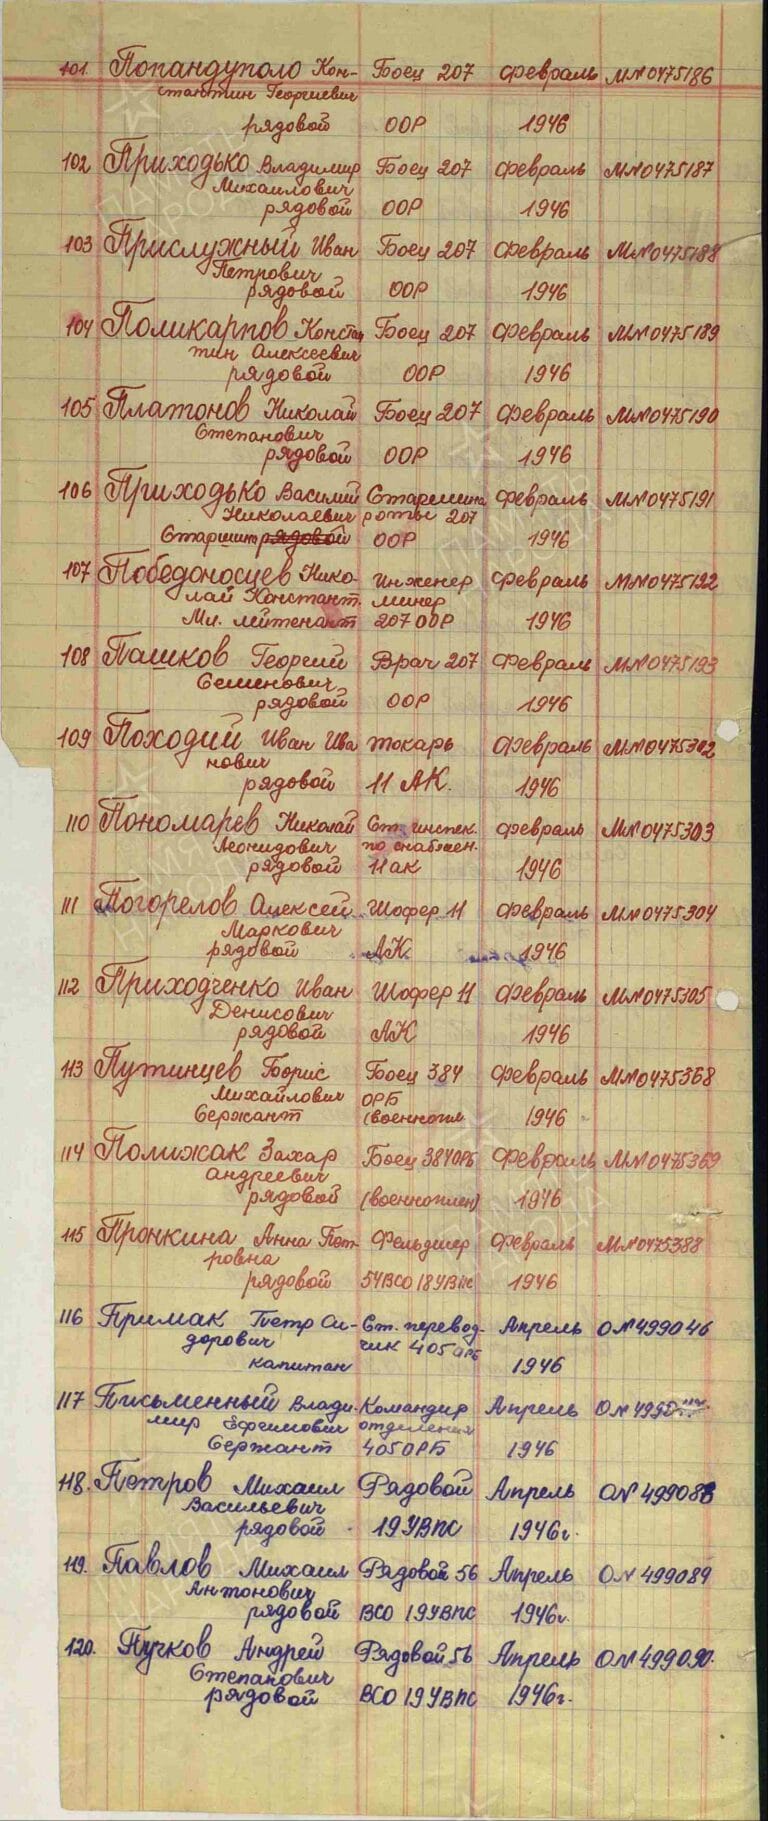 101. Попандуполо Кон- Боец 207 февраль МN0475186
стантин Георгиевич
рядовой ООР 1946
102 Приходько Владимир Боец 207 февраль МN0475187
Михайлович
рядовой ООР 1946
103 Прислужный Иван Боец 207 февраль МN0475188
Петрович
рядовой ООР 1946
104 Поликарпов Констан Боец 207 февраль МN0475189
тин Алексеевич
рядовой ООР 1946
105 Платонов Николай Боец 207 февраль МN0475190
Степанович
рядовой ООР 1946
106 Приходько Василий Старшина февраль МN0475191
Николаевич роты 207
Старшина рядовой ООР 1946
107 Победоносцев Нико- инженер февраль МN0475192
лай Констант. минер
Мл. лейтенант 207 ООР 1946
108 Пашков Георгий Врач 207 февраль МN0475193
Семенович
рядовой ООР 1946
109 Походий Иван Ива токарь февраль МN0475302
нович
рядовой 11 АК. 1946
110 Пономарев Николай Ст. инспек. февраль МN0475303
Леонидович по снабжен.
рядовой 11 ак 1946
111 Погорелов Алексей Шофер 11 февраль МN0475304
Маркович
рядовой АК 1946
112 Приходченко Иван Шофер 11 февраль МN0475305
Денисович
рядовой АК 1946
113 Путинцев Борис Боец 384 февраль МN0475368
Михайлович ОРБ
Сержант (военнопл 1946
114 Полижак Захар Боец 384 ОРБ февраль МN0475369
Андреевич
рядовой (военноплен) 1946
115 Пронкина Анна Пет- Фельдшер февраль МN0475388
ровна
рядовой 54 ВСО 18 УВПС 1946
116 Примак Петр Си- Ст. перевод- Апрель ОN499046
дорович чик 405 ОРБ
капитан 1946
117 Письменный Влади- Командир Апрель
мир Ефимович отделения
Сержант 405 ОРБ 1946
118. Петров Михаил Рядовой Апрель ОN 499088
Васильевич
рядовой 19 УВПС 1946г.
119. Павлов Михаил Рядовой 56 Апрель ОN 499089
Антонович
рядовой ВСО 19 УВПС 1946г.
120. Пучков Андрей Рядовой 56 Апрель ОN 499090.
Степанович
рядовой ВСО 19 УВПС 1946г.